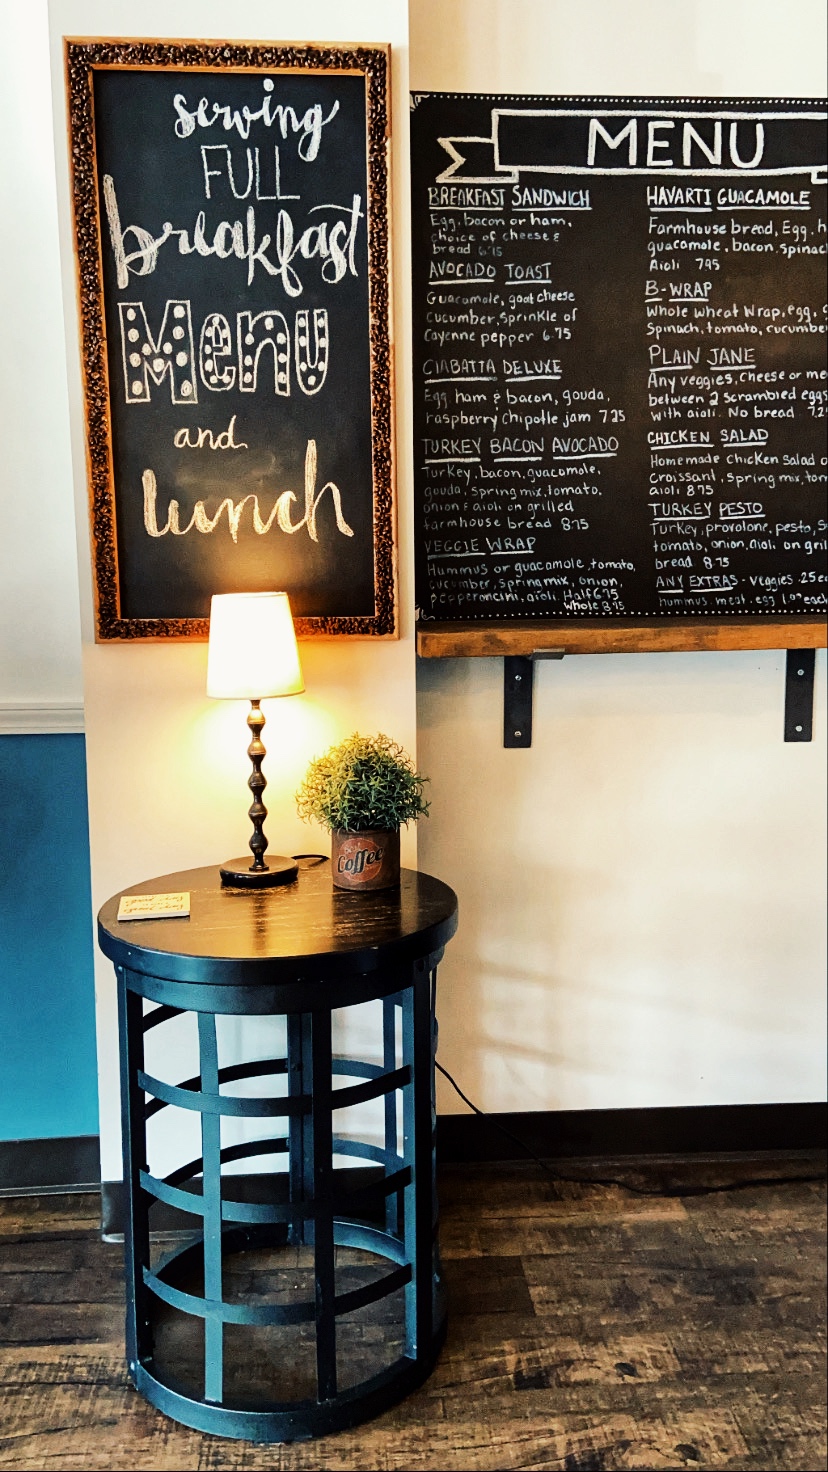 serving
FULL
breakfast
Menu
and
lunch
MENU
BREAKFAST SANDWICH
Egg, bacon or ham,
choice of cheese &
bread 6.75
AVOCADO TOAST
Guacamole, goat cheese
Cucumber, Sprinkle of
Cayenne pepper 6.75
CIABATTA DELUXE
Egg ham & bacon, gouda,
raspberry chipotle jam 7.25
TURKEY BACON AVOCADO
Turkey, bacon, guacamole,
gouda, spring mix, tomato,
onion & aioli on grilled
farmhouse bread 8.75
VEGGIE WRAP
Hummus or guacamole, tomato,
cucumber, spring mix, onion,
pepperoncini, aioli. Half 6.75
Whole 8.75
HAVARTI GUACAMOLE
Farmhouse bread, Egg, h
guacamole, bacon, spinac
Aioli 7.95
B-WRAP
Whole wheat wrap, egg,
Spinach, tomato, cucumber
PLAIN JANE
Any veggies, cheese or me
between 2 scrambled eggs
with aioli. No bread 7.2
CHICKEN SALAD
Homemade chicken salad o
croissant, spring mix, tom
aioli 8.75
TURKEY PESTO
Turkey, provolone, pesto, S
tomato, onion, aioli on gril
bread 8.75
ANY EXTRAS - veggies .25e
hummus, meat, egg 1.00 each
Coffee